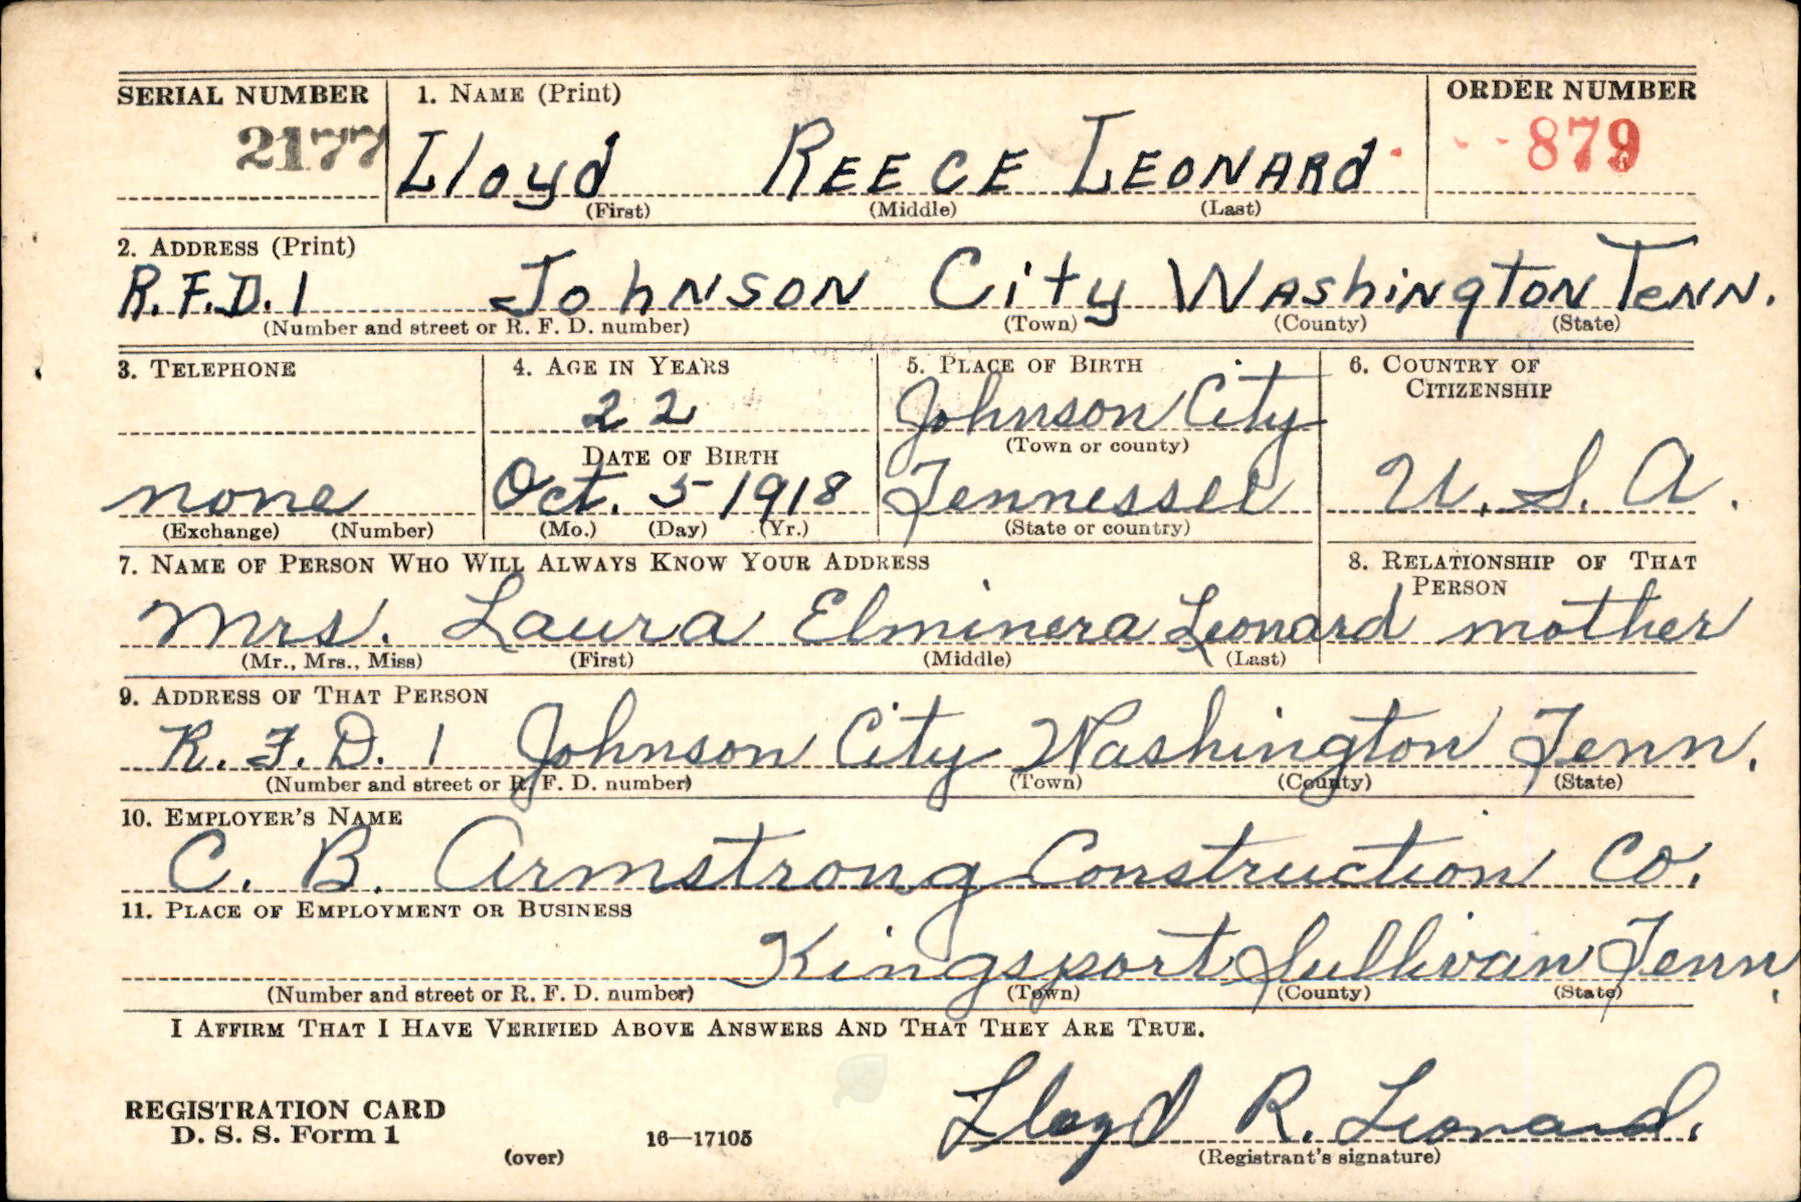 SERIAL NUMBER 1. NAME (Print) ORDER NUMBER
2177 Lloyd REECE LEONARD 879
(First) (Middle) (Last)
2. ADDRESS (Print)
R.F.D. 1 Johnson City Washington Tenn.
(Number and street or R. F. D. number) (Town) (County) (State)
3. TELEPHONE 4. AGE IN YEARS 5. PLACE OF BIRTH 6. COUNTRY OF CITIZENSHIP
22 Johnson City
DATE OF BIRTH (Town or county)
none Oct. 5 1918 Tennessee U. S. A.
(Exchange) (Number) (Mo.) (Day) (Yr.) (State or country)
7. NAME OF PERSON WHO WILL ALWAYS KNOW YOUR ADDRESS 8. RELATIONSHIP OF THAT PERSON
Mrs. Laura Elminera Leonard mother
(Mr., Mrs., Miss) (First) (Middle) (Last)
9. ADDRESS OF THAT PERSON
R. F. D. 1 Johnson City Washington Tenn.
(Number and street or R. F. D. number) (Town) (County) (State)
10. EMPLOYER'S NAME
C. B. Armstrong Construction Co.
11. PLACE OF EMPLOYMENT OR BUSINESS
Kingsport Sullivan Tenn.
(Number and street or R. F. D. number) (Town) (County) (State)
I AFFIRM THAT I HAVE VERIFIED ABOVE ANSWERS AND THAT THEY ARE TRUE.
REGISTRATION CARD
D. S. S. Form 1 16—17105 Lloyd R. Leonard.
(over) (Registrant's signature)